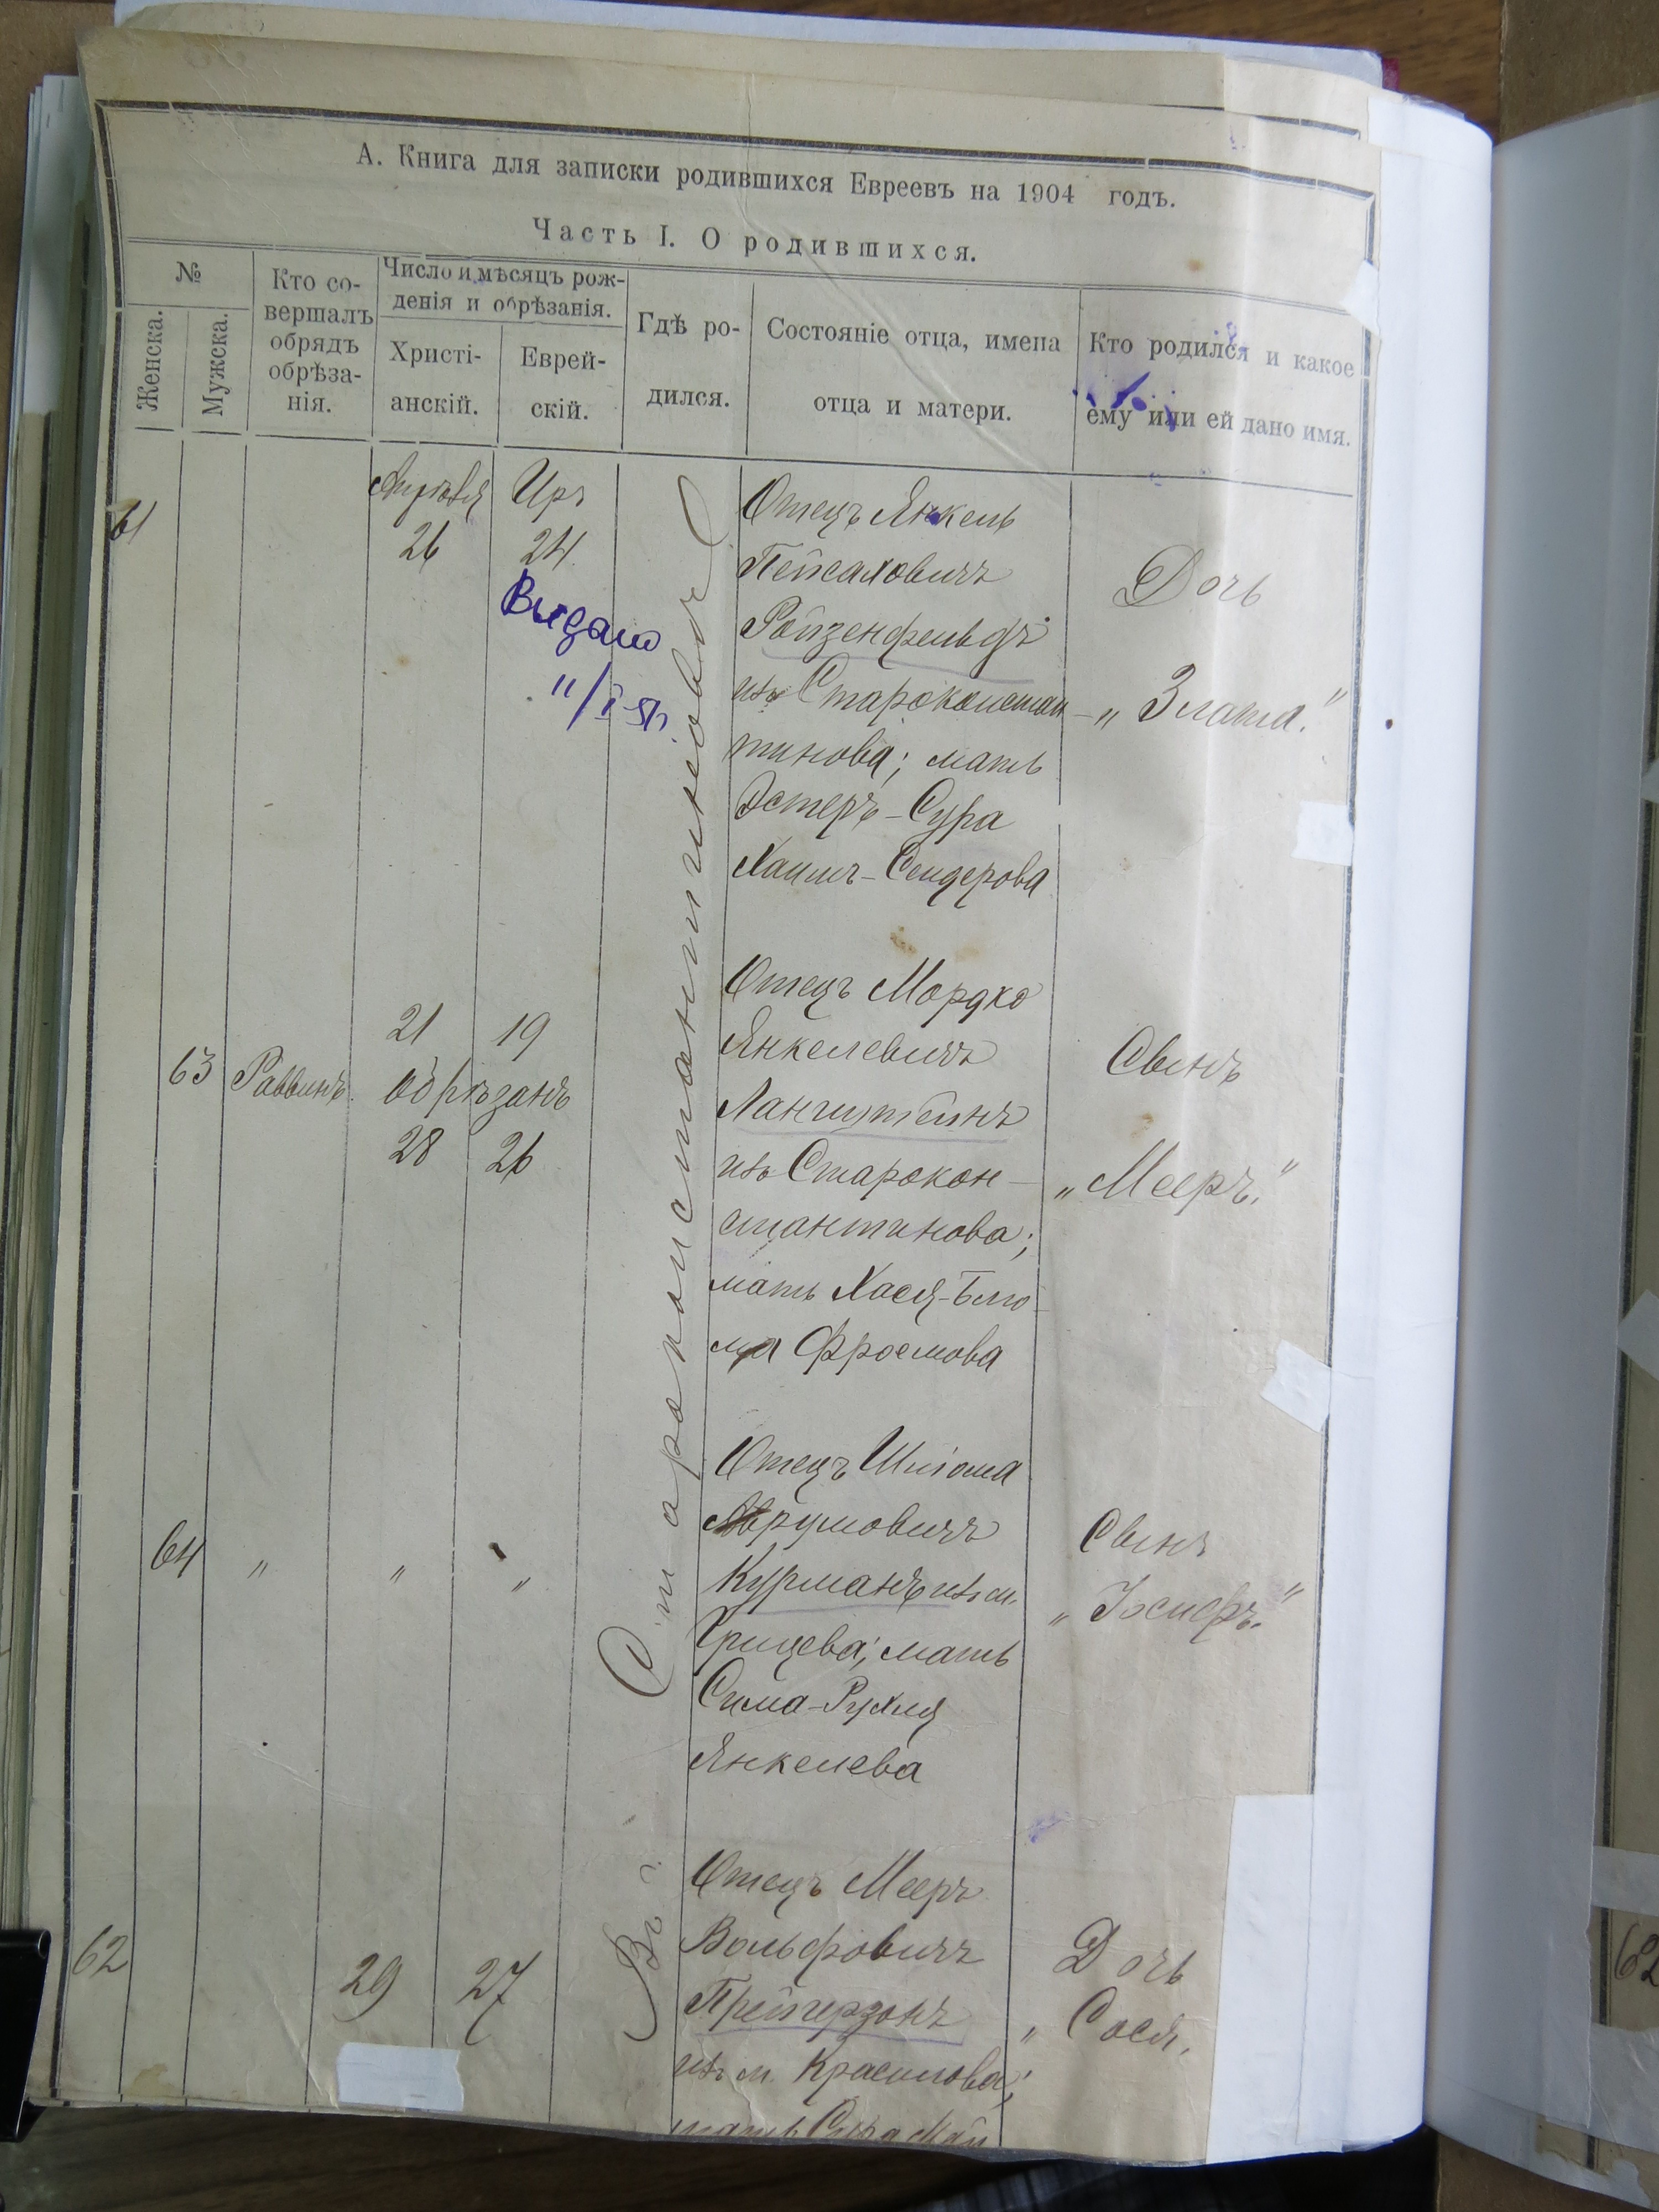 А. Книга для записки родившихся Евреевъ на 1904 годъ.
Часть I. О родившихся.
№
Женска.
Мужска.
Кто со-
вершалъ
обрядъ
обрѣза-
нія.
Число и мѣсяцъ рож-
денія и обрѣзанія.
Христі-
анскій.
Еврей-
скій.
Гдѣ ро-
дился.
Состояніе отца, имена
отца и матери.
Кто родился и какое
ему или ей дано имя.
61
Апрѣля
26
Иръ
24
Выдано
Въ г. Староконстантиновѣ
Отецъ Янкель
Пейсаховичъ
Ройзенфельдъ
изъ Староконстан-
тинова; мать
Эстеръ-Сура
Хаимъ-Сендерова
Дочь
„Злата."
63
Раввинъ.
21
19
обрѣзанъ
28
26
Отецъ Мордко
Янкелевичъ
Лангштейнъ
изъ Старокон-
стантинова;
мать Хася-Блю-
ма Фроемова
Сынъ
„Мееръ."
64
„
„
„
Отецъ Шліома
Аврумовичъ
Курманъ изъ м.
Грицева; мать
Сима-Рухля
Янкелева
Сынъ
„Іосифъ."
62
29
27
Отецъ Мееръ
Вольфовичъ
Прейгерзонъ
изъ м. Красилова;
мать Сура
Дочь
„Сося.
62